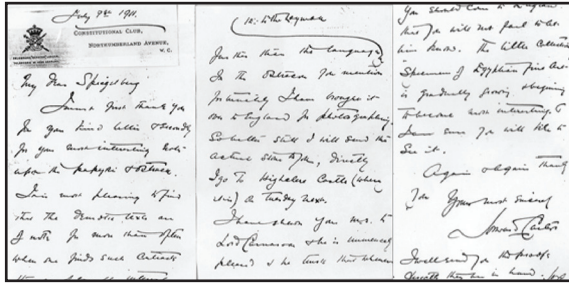 July 9th 1911.
CONSTITUTIONAL CLUB,
NORTHUMBERLAND AVENUE,
W.C.
My Dear Spiegelberg
I must first thank you
for your kind letter & secondly
for your most interesting notes
upon the papyri & ostraca.
It is most pleasing to find
that the Demotic texts are
of note for more than often
when one finds such
further than the language
In the ostracon you mention
fortunately I have brought it
over to England for photographing
So better still I will send the
actual stone to you, directly
I go to Highclere Castle (where
it is) on Tuesday next.
I have shown your to
Lord Carnarvon & he is immensely
pleased & he trusts that whenever
you should come to
that you will not fail to let
him know. The little Collection
Specimens of Egyptian fine Art
is gradually growing & beginning
to become most interesting &
I am sure you will like to
see it.
Again & again thanks
Yours most sincerely
Howard Carter
I will send you the proofs